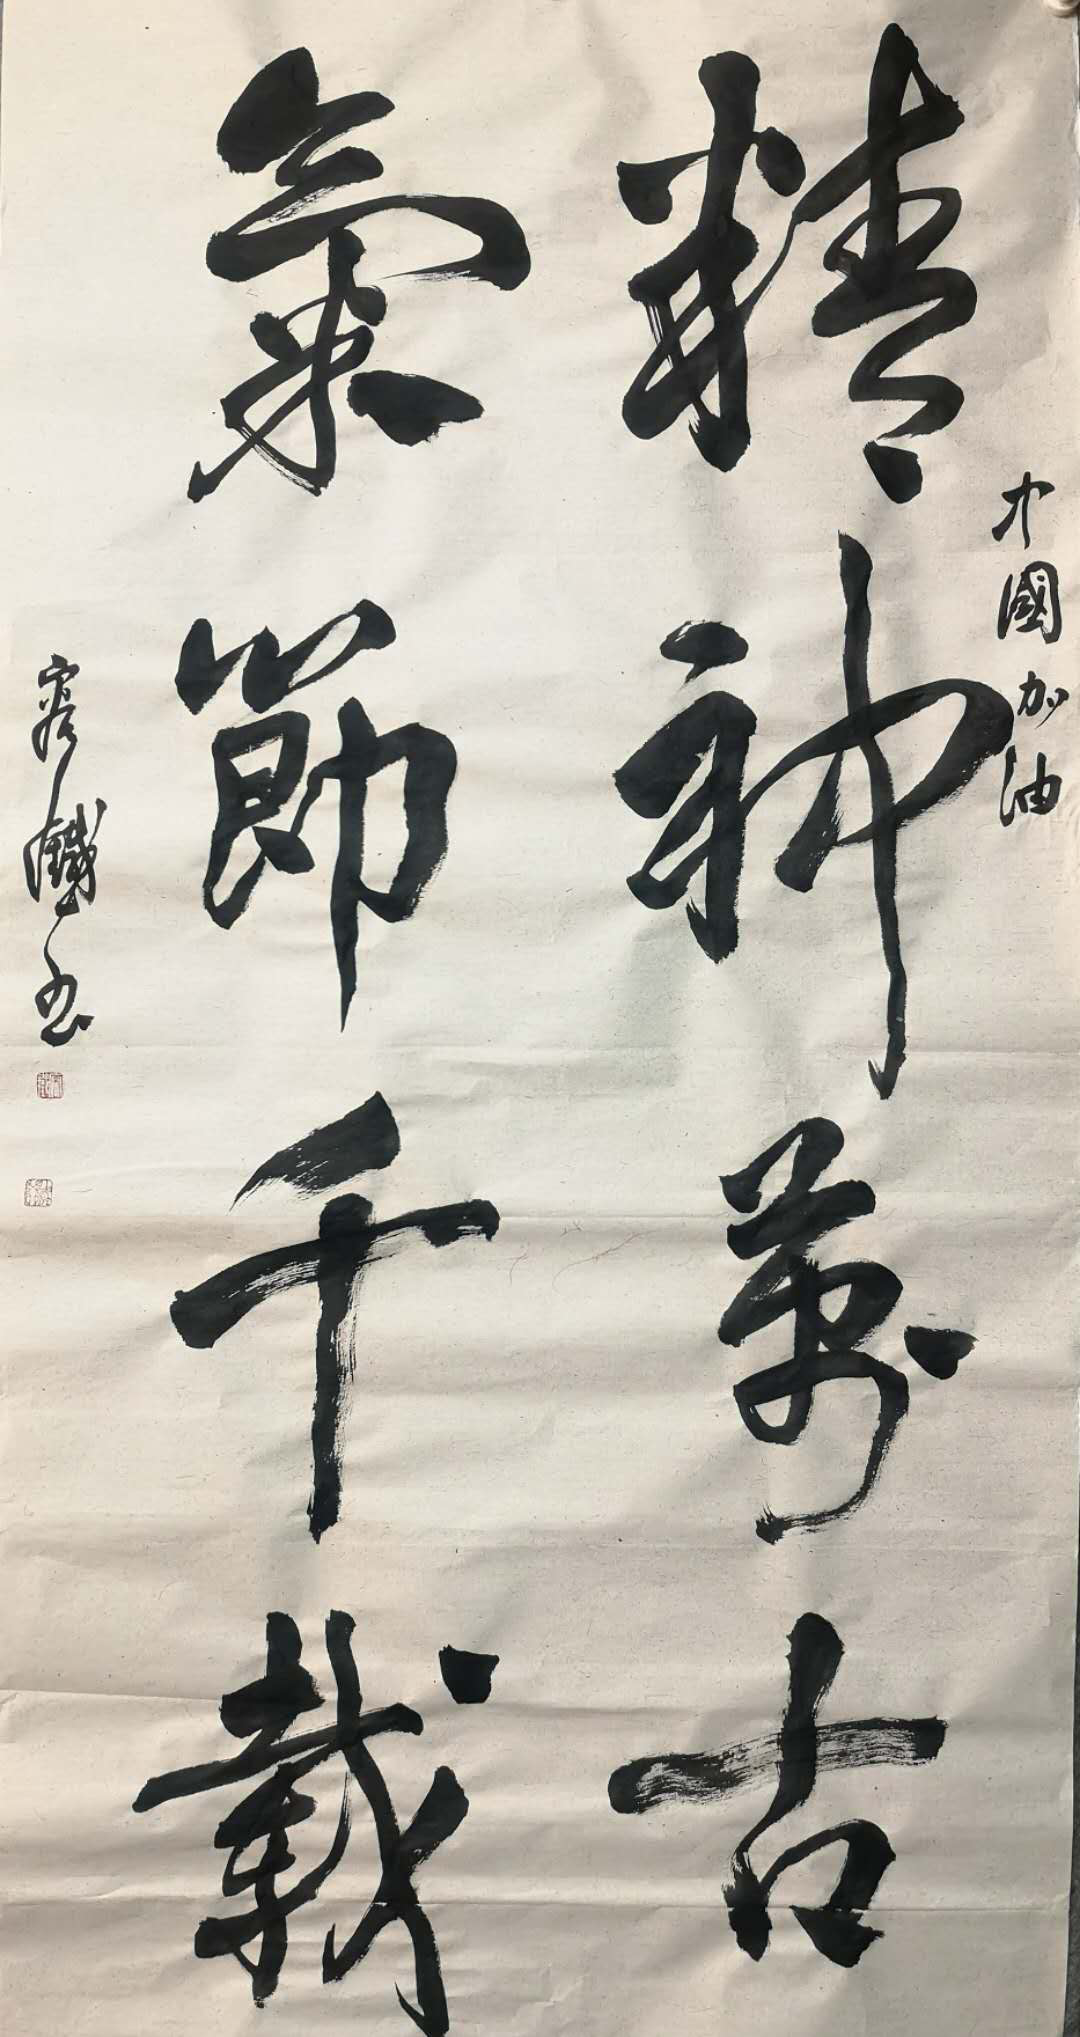 中國加油
精神萬古
氣節千載
鐵書